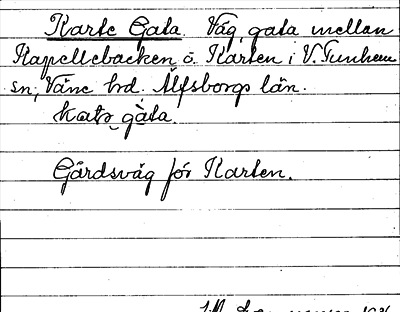 Karte Gata. Väg, gata mellan
Kapellebacken o. Karten i V. Tunhem
sn, Väne hd. Älfsborgs län.
kata gàta.
Gårdsväg för Karten.